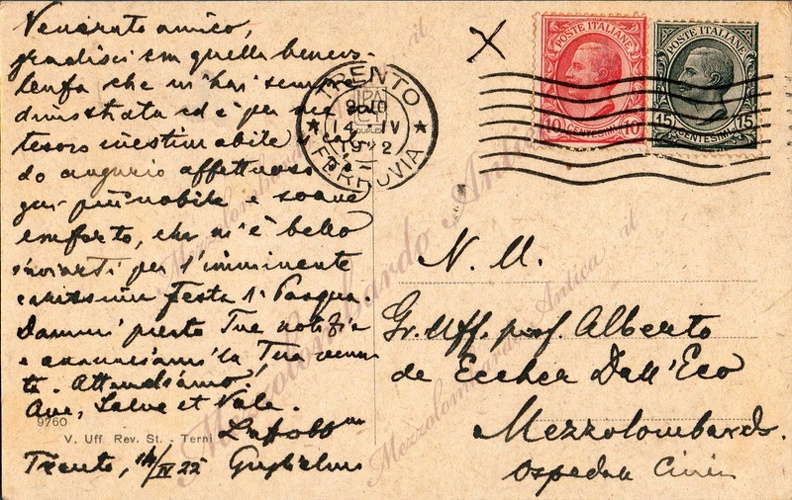 Venerato amico,
gradisci con quella benevo-
lenza che m'hai sempre
dimostrata ed è per me
tesoro inestimabile
do augurio affettuoso
più nobile e soave
conforto, che m'è bello
inviarti per l'imminente
Festa di Pasqua.
Dammi presto Tue notizie
e annunciami la Tua venu-
ta. Attendiamo!
Ave, Salve et Vale.
9760
V. Uff Rev. St. - Terni
Trento, 14/IV 22 Guglielmo
TRENTO
14 IV
1922
FERROVIA
POSTE ITALIANE
10 CENTESIMI 10
POSTE ITALIANE
15 CENTESIMI 15
X
N. U.
Gr. Uff. prof. Alberto
de Eccher Dall'Eco
Mezzolombardo.
Ospedale Civile
Mezzolombardo Antica .it
Mezzolombardo Antica .it